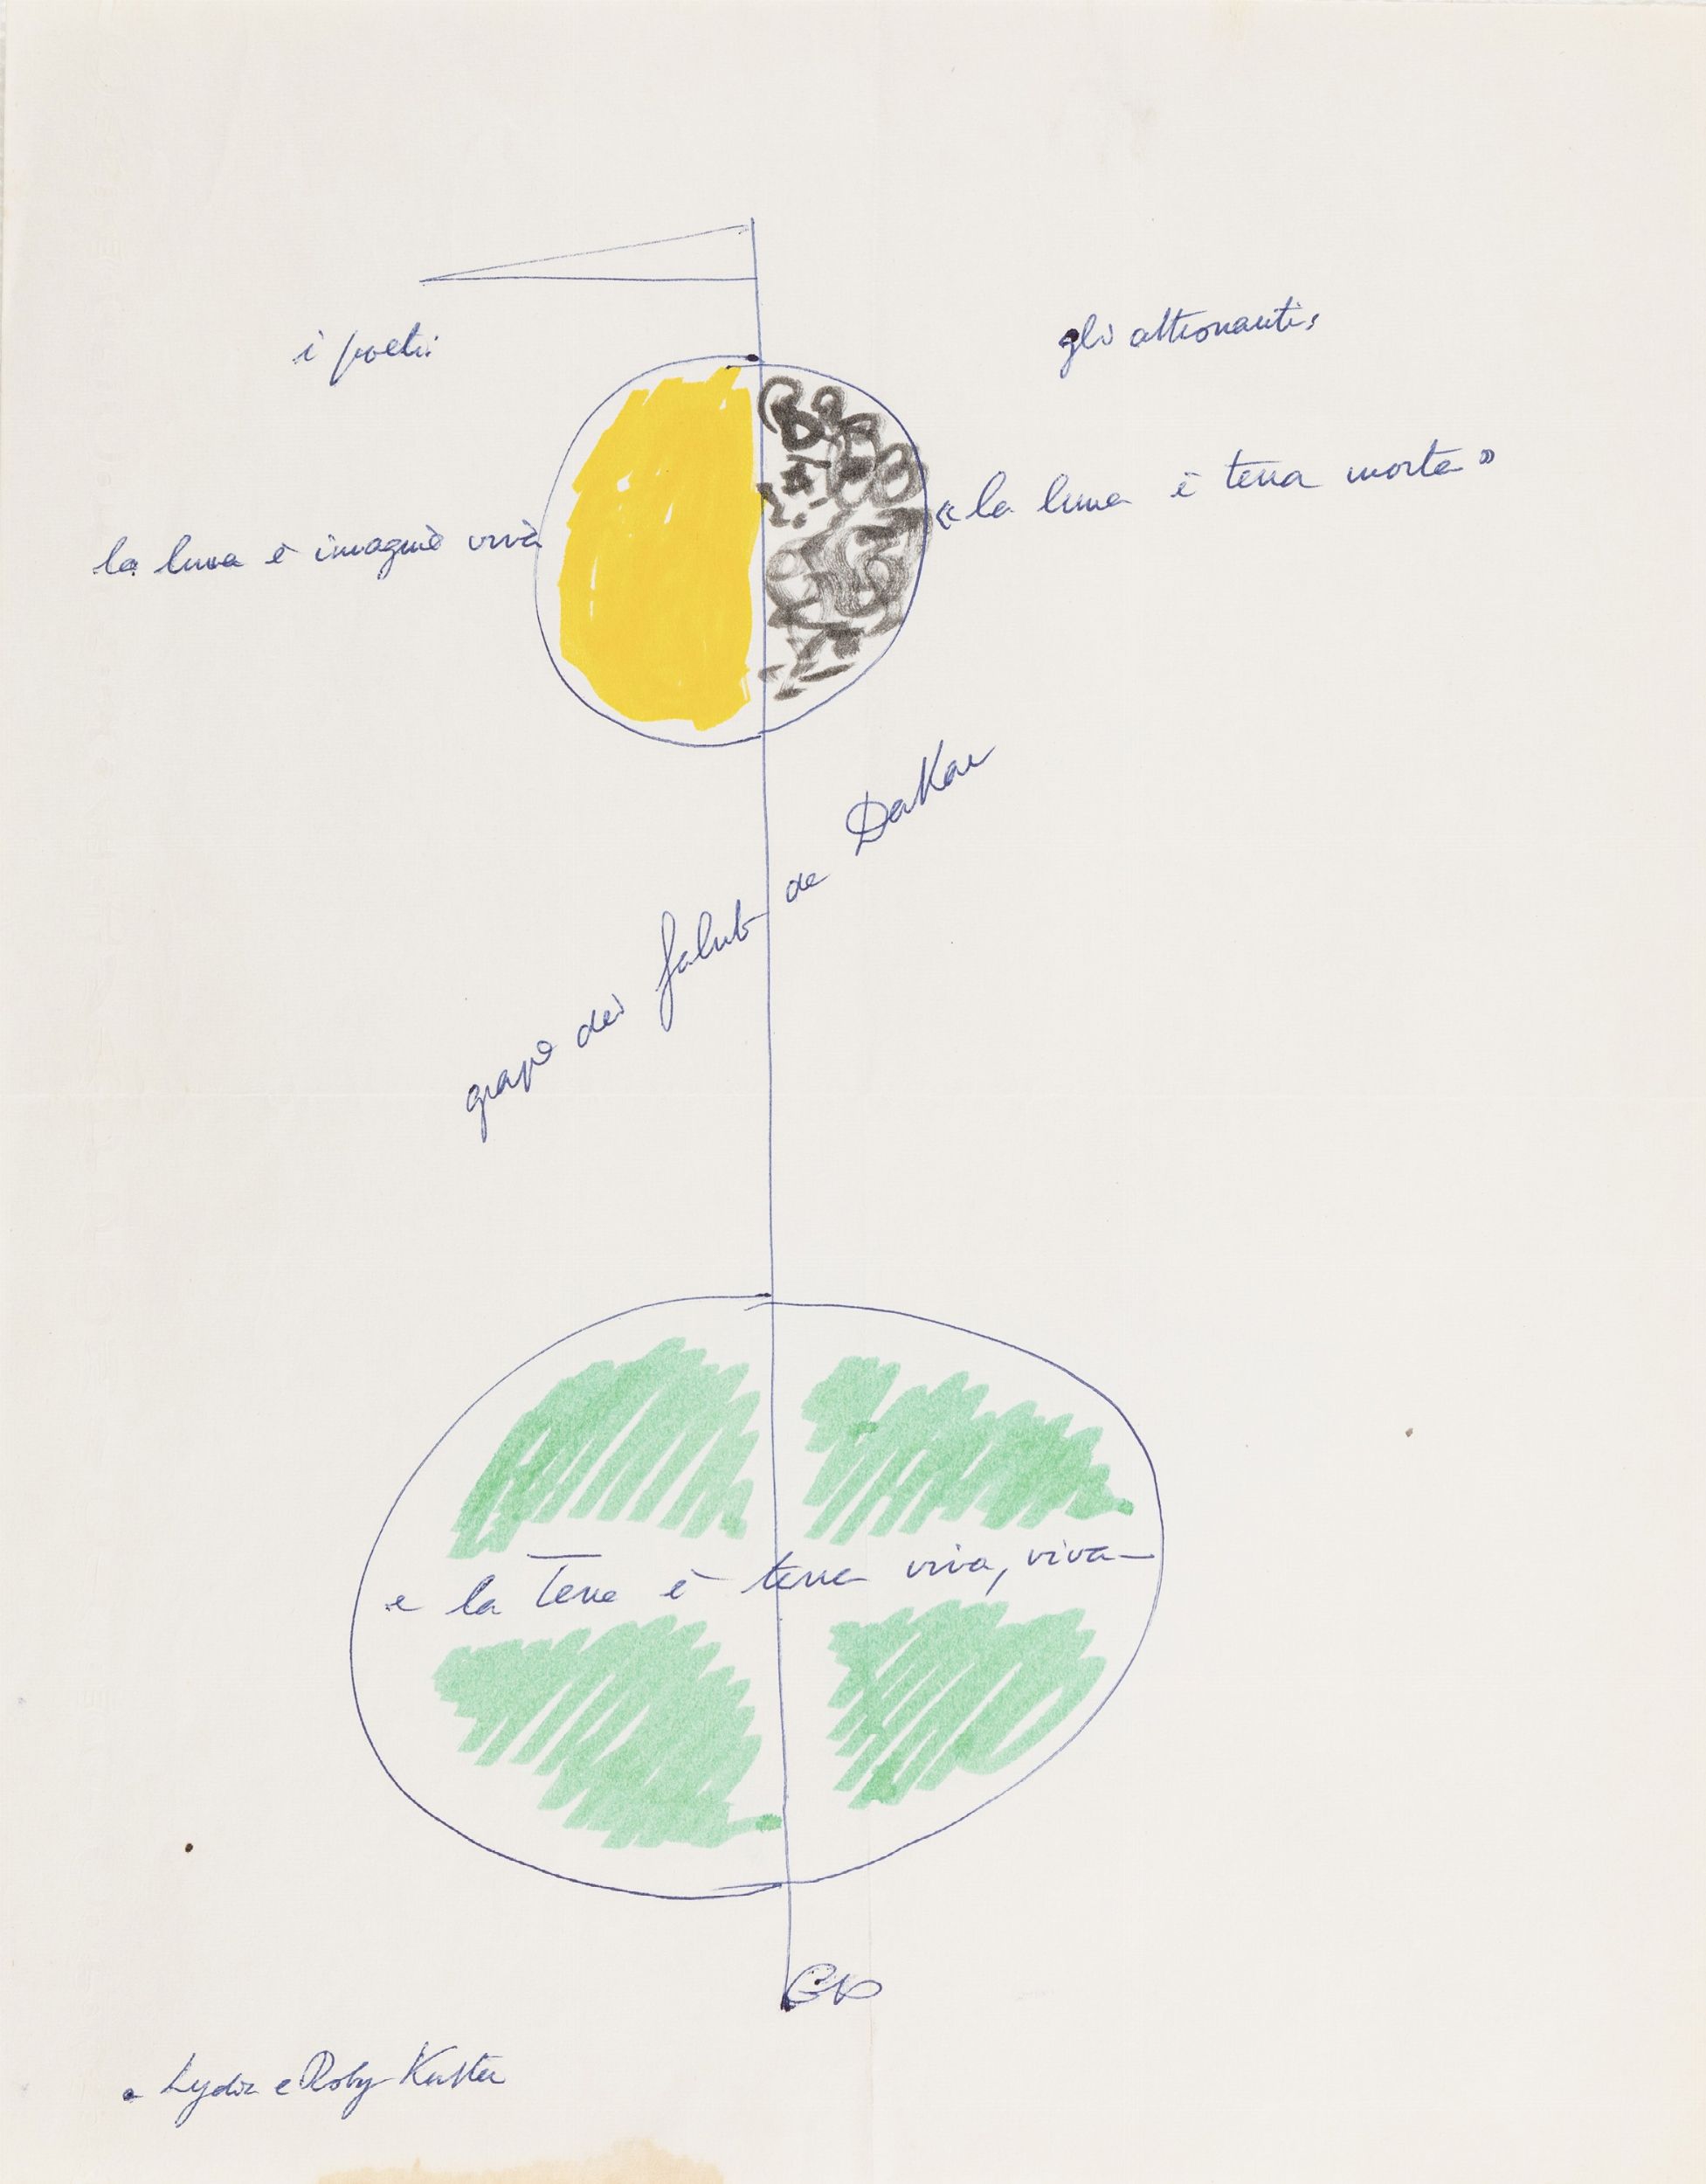 i poeti:
gli astronauti:
la luna è imagine viva
«la luna è terra morta»
grazie dei saluti da Dakar
e la Terra è terra viva, viva
a Lydia e Roby